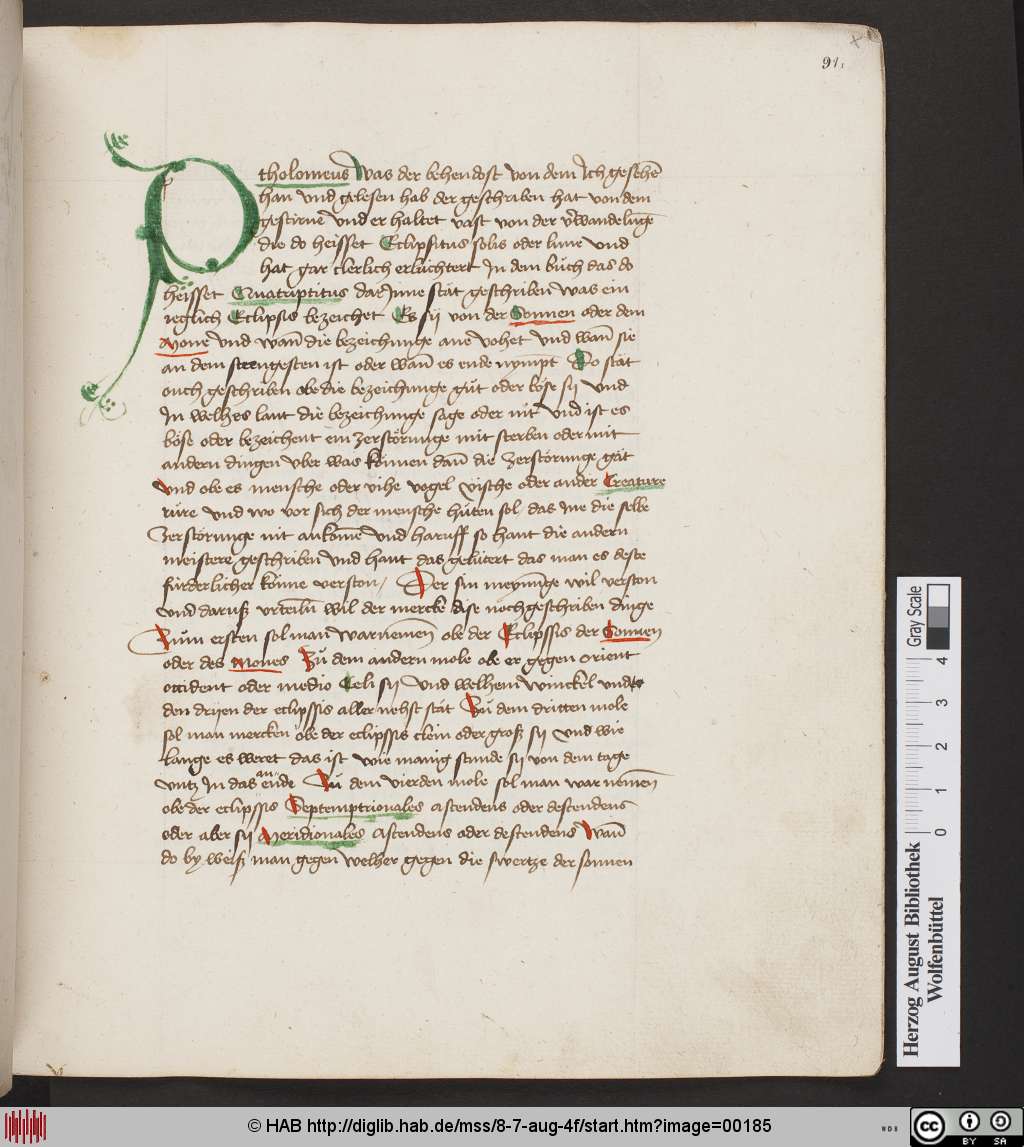 91.
Ptholomeus was der behendost von dem Ich gesehē
han vnd gelesen hab der geschriben hat von dem
gestirne vnd er haltet vast von der v̄wandelūge
die do heisset Eclipsitus solis oder lune vnd
hat gar clerlich erlüchtert In dem bůch das do
heisset Quatriptitus dar Inne stät geschriben was ein
ieglich Eclipsis bezeichet Es sÿ von der Sonnen oder dem
Mone vnd wañ die bezeichunge ane vohet vnd wañ sie
an dem strengesten ist oder wañ es ende nympt Do stät
ouch geschriben obe die bezeichunge gůt oder böse sÿ vnd
In welhes lant die bezeichunge sage oder nit vnd ist es
böse oder bezeichent ein zerstörunge mit sterben oder mit
andern dingen vber was können dañ die zerstörunge gät
vnd obe es mensche oder vihe vogel vische oder ander Creature
rüre vnd wo vor sich der mensche hüten sol das Ime die selbe
Zerstörunge nit ankome vnd haruff so hant die andern
meistere geschriben vnd hant das gelütert das man es deste
fürderlicher könne verston / Der sin meynūge wil verston
vnd daruß vrteiln wil der mercke dise nochgeschriben dinge
Zům ersten sol man warnemen obe der Eclipssis der Sonnen
oder des Mones Zů dem andern mole obe er gegen orient
occident oder medio Celi sÿ vnd welhem winckel vnder
den drÿen der eclipssis aller nehst stät Zů dem dritten mole
sol man mercken obe der eclipssis clein oder groß sÿ vnd wie
lange es weret das ist wie manig stunde sÿ von dem tage
vntz In das ende Zů dem vierden mole sol man war nemen
an
obe der eclipssis Septemptrionales ascendens oder descendens
oder aber sÿ Meridionales ascendens oder descendens wañ
do by weiß man gegen welher gegen die swertze der sonnen
Gray Scale
0 1 2 3 4
Herzog August Bibliothek
Wolfenbüttel
© HAB http://diglib.hab.de/mss/8-7-aug-4f/start.htm?image=00185
WDB
cc BY SA